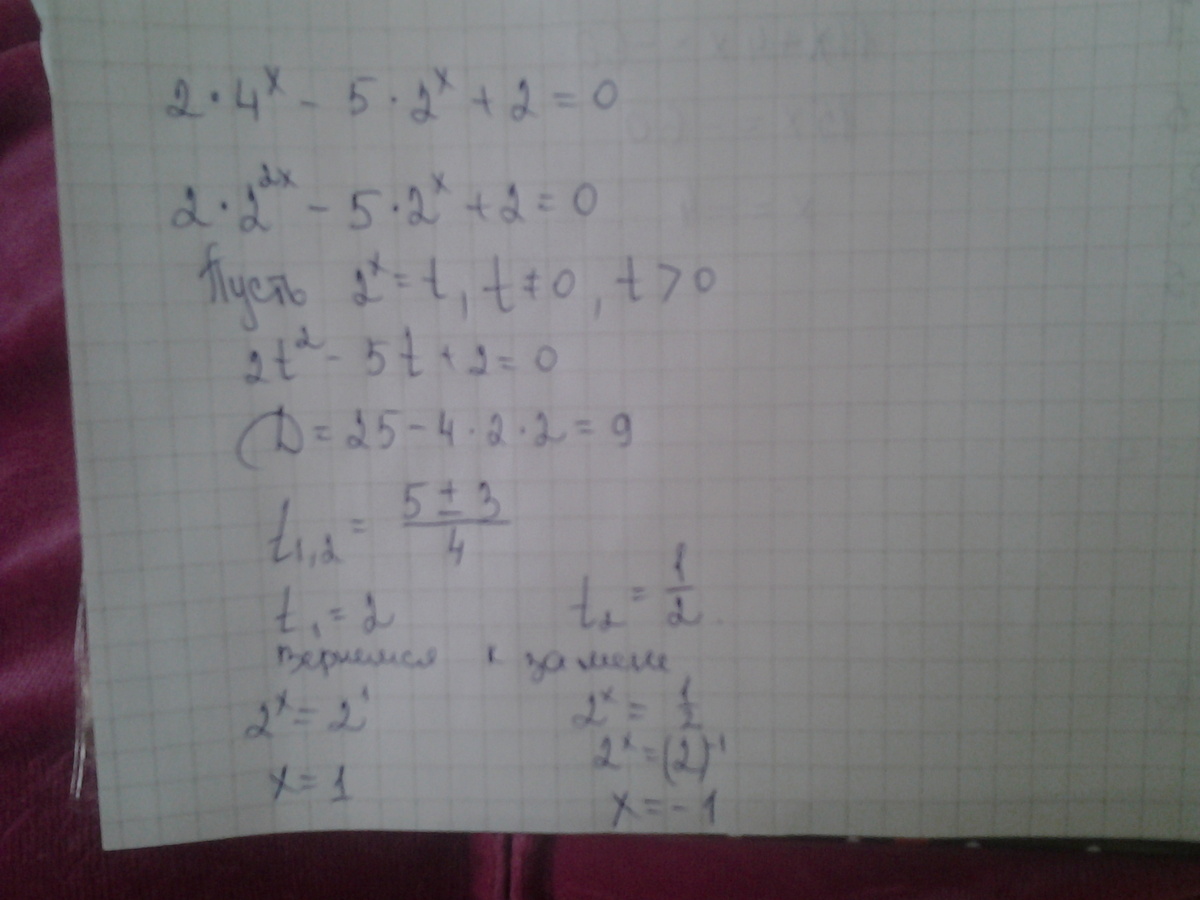 2·4ˣ - 5·2ˣ + 2 = 0
2·2²ˣ - 5·2ˣ + 2 = 0
Пусть 2ˣ = t, t ≠ 0, t > 0
2t² - 5t + 2 = 0
D = 25 - 4·2·2 = 9
t₁,₂ = (5 ± 3)/4
t₁ = 2 t₂ = 1/2
Вернемся к замене
2ˣ = 2¹ 2ˣ = 1/2
2ˣ = (2)⁻¹
x = 1
x = -1